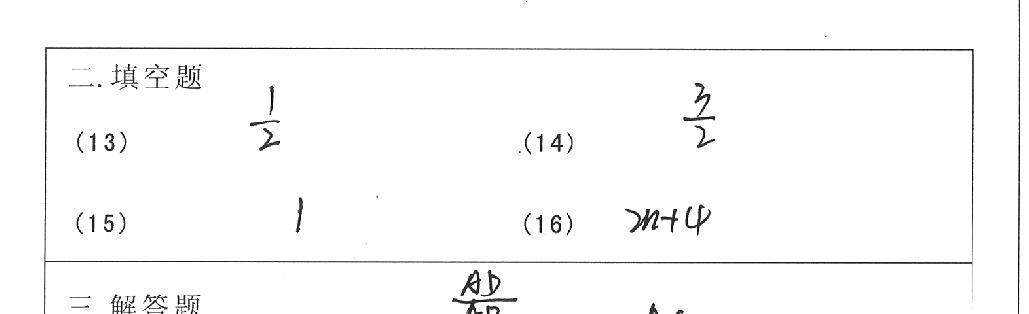 二.填空题
(13) 1/2 (14) 3/2
(15) 1 (16) 2n+4
三 解答题 AD